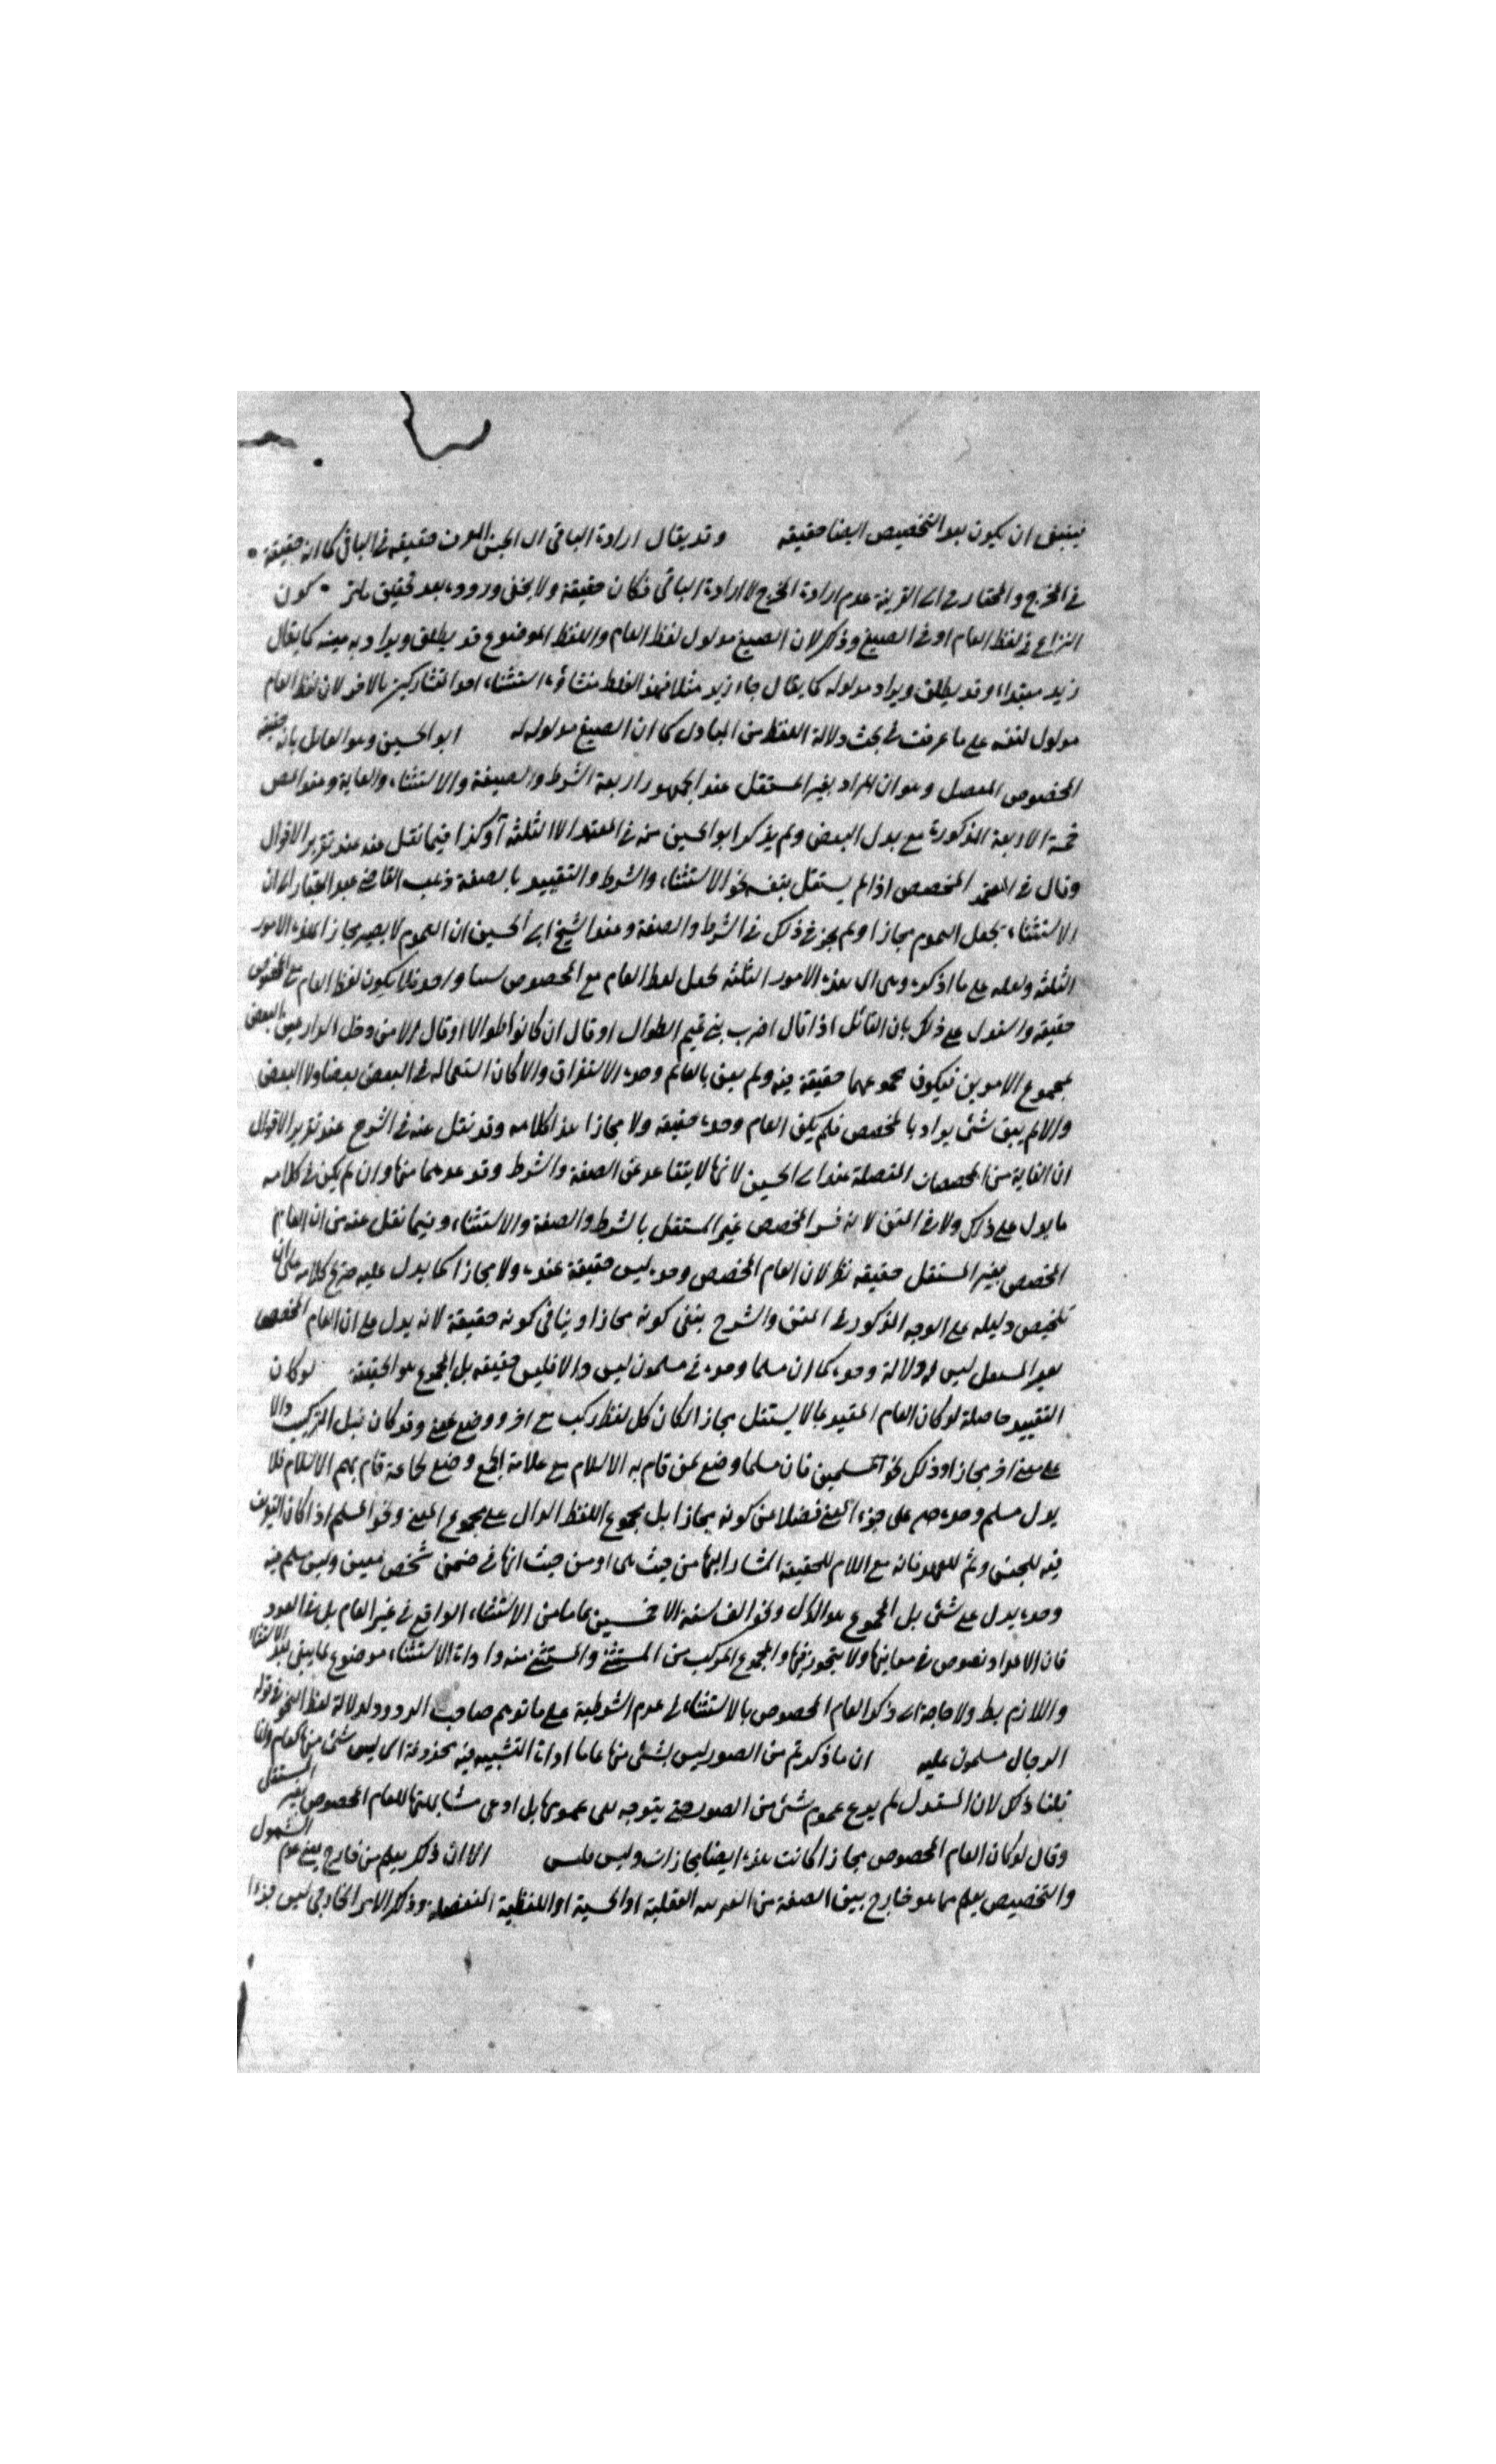 فينبغى ان يكون بعد التخصيص ايضا حقيقه وقد يقال ارادة الباقى حقيقه فى الباقى كما انه حقيقة
فى المخرج والمختار القرينة عدم ارادة المخرج لا ارادة الباقى فكان حقيقة ولا يخفى وروده بعد تحقيق كون
النزاع فى لفظ العام او فى الصيغ وذكر لان الصيغ مدلول لفظ العام واللفظ الموضوع قد يطلق ويراد به عينه كما يقال
زيد مبتداء وقد يطلق ويراد مدلوله كما يقال جاء زيد مثلا فهذا الغلط منشاؤه اشتباه احد المتشاركين بالاخر لان لفظ العام
مدلول لنفسه على ما عرفت فى بحث دلالة اللفظ من المبادى كما ان الصيغ مدلوله له ابو الحسين وهو القائل بانه حقيقة
المخصوص المتصل وهو ان المراد بغير المستقل عند الجمهور اربعة الشرط والصفة والاستثناء والغاية وعند المص
خمسة الاربعة المذكورة مع بدل البعض ولم يذكر ابو الحسين منه فى المعتمد الا الثلثة وكذا فيما نقل عنه عند تقرير الاقوال
وقال فى المعتمد المخصص اذا لم يستقل بنفسه نحو الاستثناء والشرط والتقييد بالصفة ذهب القاضى عبد الجبار الى ان
الاستثناء يجعل العموم مجازا ولم يجز فى ذلك فى الشرط والصفة وعند الشيخ ابى الحسين ان العموم لا يصير مجازا بهذه الامور
الثلثة ولعله على ما اذكره وهى ان هذه الامور الثلثه تجعل لفظ العام مع المخصوص واحد فلا يكون لفظ العام مع المخصوص
حقيقه واستدل على ذلك بان القائل اذا قال اضرب بنى تميم الطوال او قال ان كانوا طوالا او قال الا من دخل الدار البعض
بمجموع الامرين فيكون مجموعهما حقيقة فيه ولم يعن بالعام وحده الاستغراق والا كان استعماله فى البعض بعضا ولا البعض
والا لم يبق شئ يراد بالمخصص فلم يكن العام وحده حقيقه ولا مجازا هذا كلامه وقد نقل عنه فى الشرح عند تقرير الاقوال
ان الغاية من المخصصات المتصلة عند ابى الحسين لانها لا يتقاعد عن الصفة والشرط وقد عدهما منها وان لم يكن فى كلامه
ما يدل على ذلك ولا فى المتن لانه فسر المخصص غير المستقل بالشرط والصفة والاستثناء وفيما نقل عنه من ان العام
المخصص بغير المستقل حقيقه نظر لان العام المخصص وحده ليس حقيقة عنده ولا مجازا كما يدل عليه صريح كلامه على ان
تلخيص دليله على الوجه المذكور فى المتن والشرح ينفى كونه مجازا وينافى كونه حقيقة لانه يدل على ان العام المخصص
بغير المستقل ليس له دلالة وحده كما ان مسلما وحده فى مسلمون ليس دالا فليس حقيقه بل المجموع هو الحقيقة لو كان
التقييد حاصله لو كان العام المقيد بما لا يستقل مجازا لكان كل لفظ ركب مع اخر ووضع لمعنى وقد كان قبل التركيب دالا
على معنى اخر مجازا وذلك نحو المسلمين فان مسلما وضع لمن قام به الاسلام مع علامة الجمع وضع لجماعة قام بهم الاسلام فلا
يدل مسلم وحده على جزء المعنى فضلا عن كونه مجازا بل مجموع اللفظ الدال على مجموع المعنى ونحو المسلم اذا كان التعريف
فيه للجنس وثم للعهد فانه مع اللام للحقيقة المشار اليها من حيث هى او من حيث انها فى ضمن شخص معين وليس مسلم فيه
وحده يدل على شئ بل المجموع هو الدال ونحو الف سنة الا خمسين عاما من الاستثناء الواقع فى غير العام بل فى العدد
فان الاعداد نصوص فى معانيها ولا يتجوز فيها والمجموع المركب من المستثنى والمستثنى منه واداة الاستثناء موضوع لما يبقى بعد الاستثناء
واللازم بط ولا حاجة الى ذكر العام المخصوص بالاستثناء فى عدم الشرطية على ما توهم صاحب الردود لدلالة لفظ النحو فى قوله
الرجال مسلمون عليه ان ما ذكرتم من الصور ليس بشئ منها عاما اداة التشبيه فيه محذوفة اى ليس شئ منها كعام وانما
قلنا ذلك لان المستدل لم يدع عموم شئ من الصور حتى يتوجه نفى عمومها بل ادعى مشابهتها للعام المخصوص بغير المستقل
وقال لو كان العام المخصوص مجازا لكانت هذه ايضا مجازات وليس فليس الا ان ذكر يعلم من خارج يعنى عدم الشمول
والتخصيص يعلم مما هو خارج عن الصفة من العقلية او الحسية او اللفظية المنفصله وذكر الامر الخارجى ليس جزءا